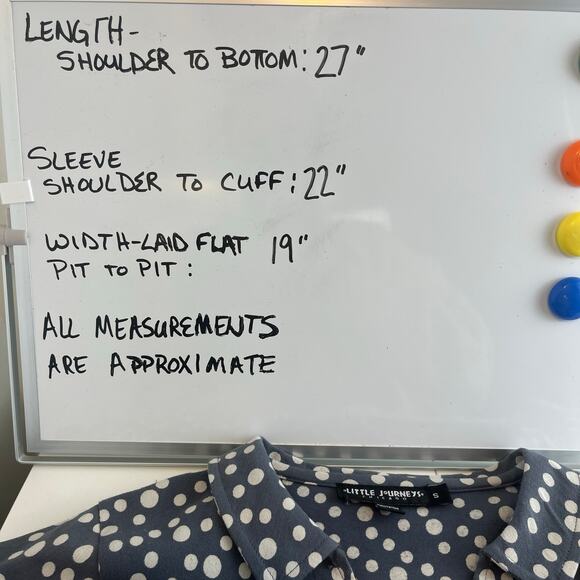 LENGTH-
SHOULDER TO BOTTOM: 27"
SLEEVE
SHOULDER TO CUFF: 22"
WIDTH-LAID FLAT 19"
PIT TO PIT:
ALL MEASUREMENTS
ARE APPROXIMATE
LITTLE JOURNEYS S
CHICAGO